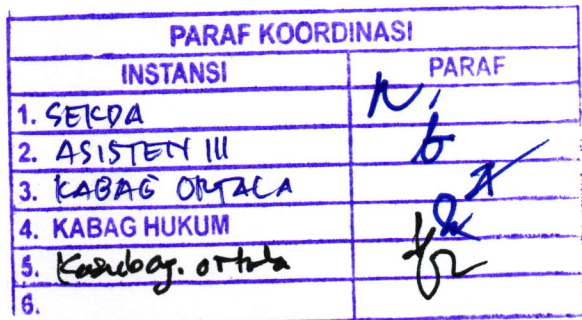 PARAF KOORDINASI
INSTANSI PARAF
1. SEKDA
2. ASISTEN III
3. KABAG ORTALA
4. KABAG HUKUM
5. Kasubag. ortala
6.